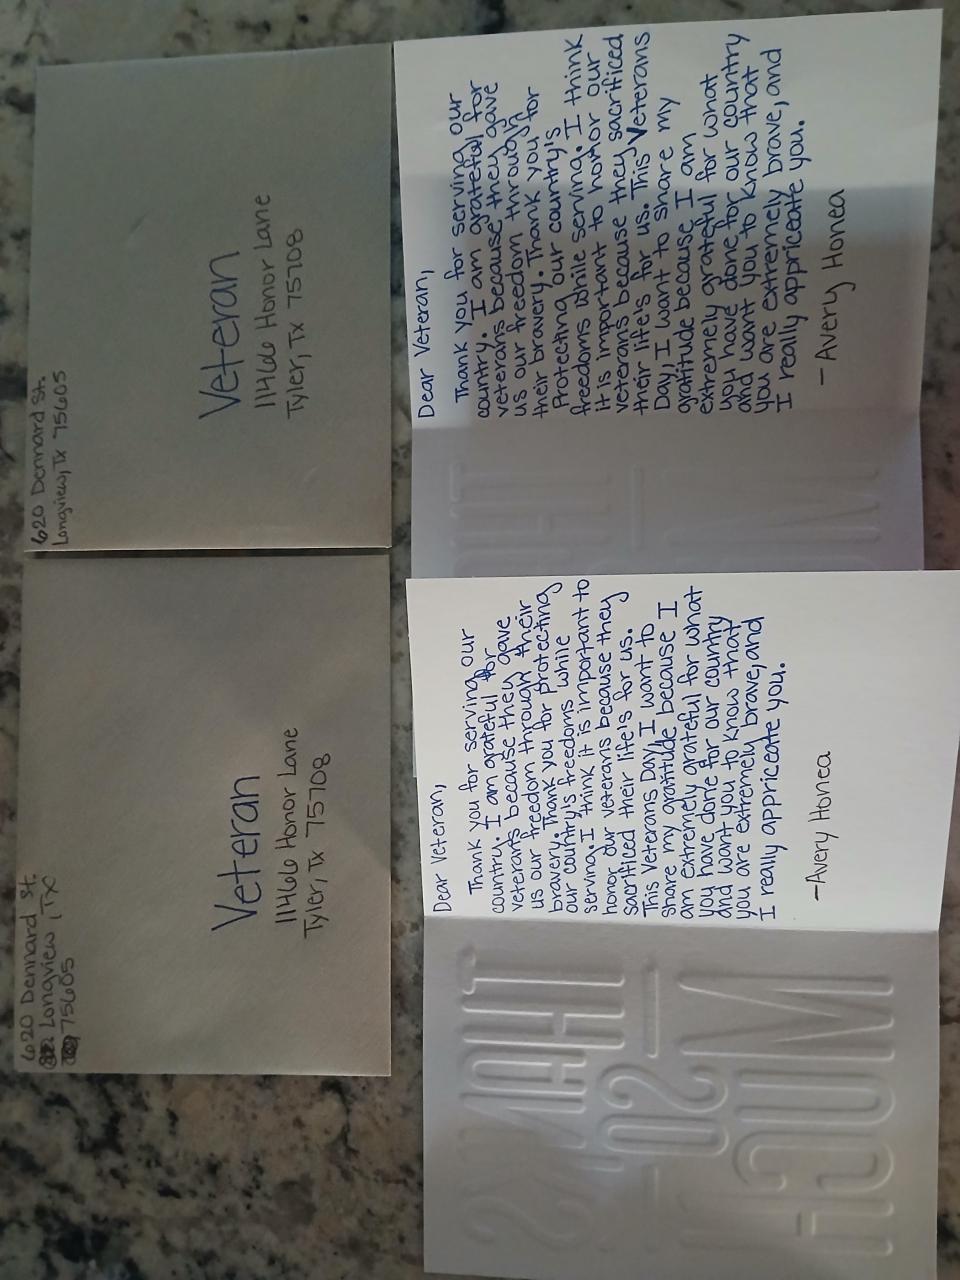 620 Dennard St.
Longview, Tx 75605
Veteran
11466 Honor Lane
Tyler, Tx 75708
Dear Veteran,
Thank you for serving our
country. I am grateful for
veterans because they gave
us our freedom through
their bravery. Thank you for
Protecting our country's
freedoms while serving. I think
it is important to honor our
veterans because they sacrificed
their life's for us. This Veterans
Day, I want to share my
gratitude because I am
extremely grateful for what
you have done for our country
and want you to know that
you are extremely brave, and
I really appriceate you.
- Avery Honea
620 Dennard St.
Longview, Tx
75605
Veteran
11466 Honor Lane
Tyler, Tx 75708
Dear Veteran,
Thank you for serving our
country. I am grateful for
veterans because they gave
us our freedom through their
bravery. Thank you for protecting
our country's freedoms while
serving. I think it is important to
honor our veterans because they
sacrificed their life's for us.
This Veterans Day, I want to
share my gratitude because I
am extremely grateful for what
you have done for our country
and want you to know that
you are extremely brave, and
I really appriceate you.
- Avery Honea
THANKS
SO
MUCH